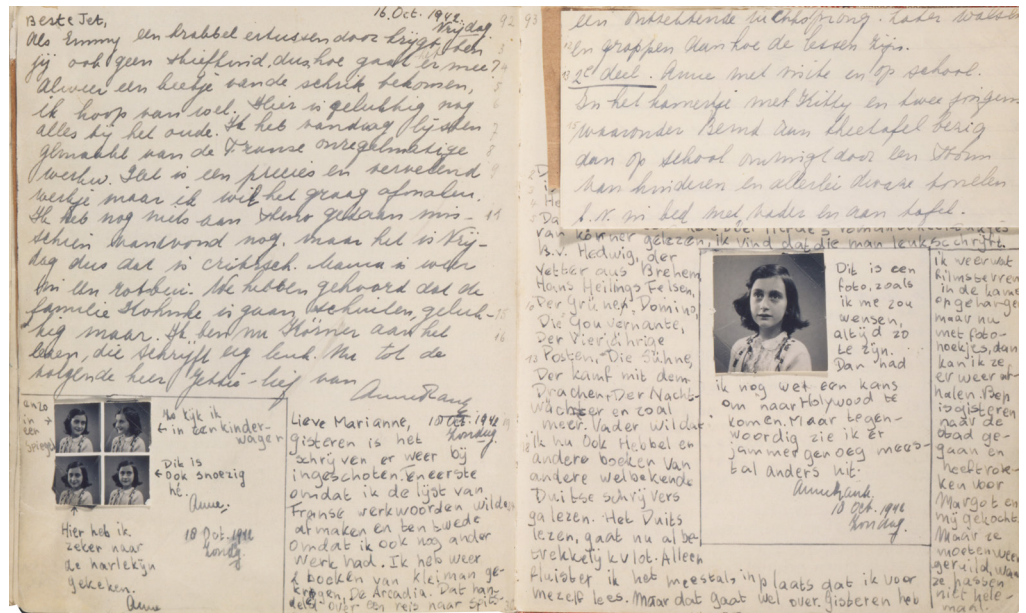 16 Oct. 1942
Vrijdag.
92 93
Beste Jet,
Als Emmy een krabbel ertussendoor krijgt, ben
jij ook geen stiefkind, dus hoe gaat er mee?
Alweer een beetje van de schrik bekomen,
ik hoop van wel. Hier is gelukkig nog
alles bij het oude. Ik heb vandaag lijsten
gemaakt van de Franse onregelmatige
werkw. Het is een precies en vervelend
werkje maar ik wil het graag afmaken.
Ik heb nog niets aan steno gedaan mis-
schien vanavond nog, maar het is Vrij-
dag dus dat is critisch. Mama is weer
in een rotbui. We hebben gehoord dat de
familie is gaan schuilen, geluk-
kig maar. Ik ben nu Körner aan het
lezen, die schrijft erg leuk. Nu tot de
volgende keer Jettie-lief van
Anne Frank
en zo
in
een
spiegel
Nu kijk ik
in een kinder-
wagen
Dit is
ook snoezig
hè.
Anne.
Hier heb ik
zeker naar
de harlekijn
gekeken.
Anne
18 Oct. 1942
Zondag.
Lieve Marianne,
18 Oct. 1942
Zondag
Gisteren is het
schrijven er weer bij
ingeschoten. Eneerste
omdat ik de lijst van
Franse werkwoorden wilde
afmaken en ten twede
omdat ik ook nog ander
werk had. Ik heb weer
2 boeken van kleiman ge-
kregen, De Arcadia. Dat han-
delt over een reis naar Spits-
een ontzettende luchtsprong. Later walsen
en grappen dan hoe de lessen zijn.
2e deel. Anne met visite en op school.
In het kamertje met Kitty en twee jongens
waaronder Bernd aan theetafel bezig
dan op school omringt door een
van kinderen en allerlei dwaze tonelen
b.v. in bed met vader en aan tafel.
van körner gelezen, ik vind dat die man leuk schrijft.
B.v. Hedwig, der
Vetter aus Bremen,
Hans Heilings Felsen,
Der Grüne Domino,
Die Gouvernante,
Der Vierjährige
Posten, Die Sühne,
Der kamf mit dem
Drachen, Der Nacht-
wächter en zoal
meer. Vader wil dat
ik nu ook Hebbel en
andere boeken van
andere welbekende
Duitse schrijvers
ga lezen. Het Duits
lezen, gaat nu al be-
trekkelijk vlot. Alleen
fluister ik het meestal inplaats dat ik voor
mezelf lees. Maar dat gaat wel over. Gisteren heb
Dit is een
foto, zoals
ik me zou
wensen,
altijd zo
te zijn.
Dan had
ik nog wel een kans
om naar Holywood te
komen. Maar tegen-
woordig zie ik er
jammer genoeg mees-
tal anders uit.
Anne Frank.
18 Oct. 1942
Zondag.
ik veerust
filmsterren
in de kamer
opgehangen
maar nu
met foto-
hoekjes, dan
kan ik ze
er weer af-
halen. Bep
is gisteren
naar de
stad ge-
gaan en
heeft rok-
ken voor
Margot en
mij gekocht.
Maar ze
moeten weer
geruild, want
ze passen
niet hele-
maal